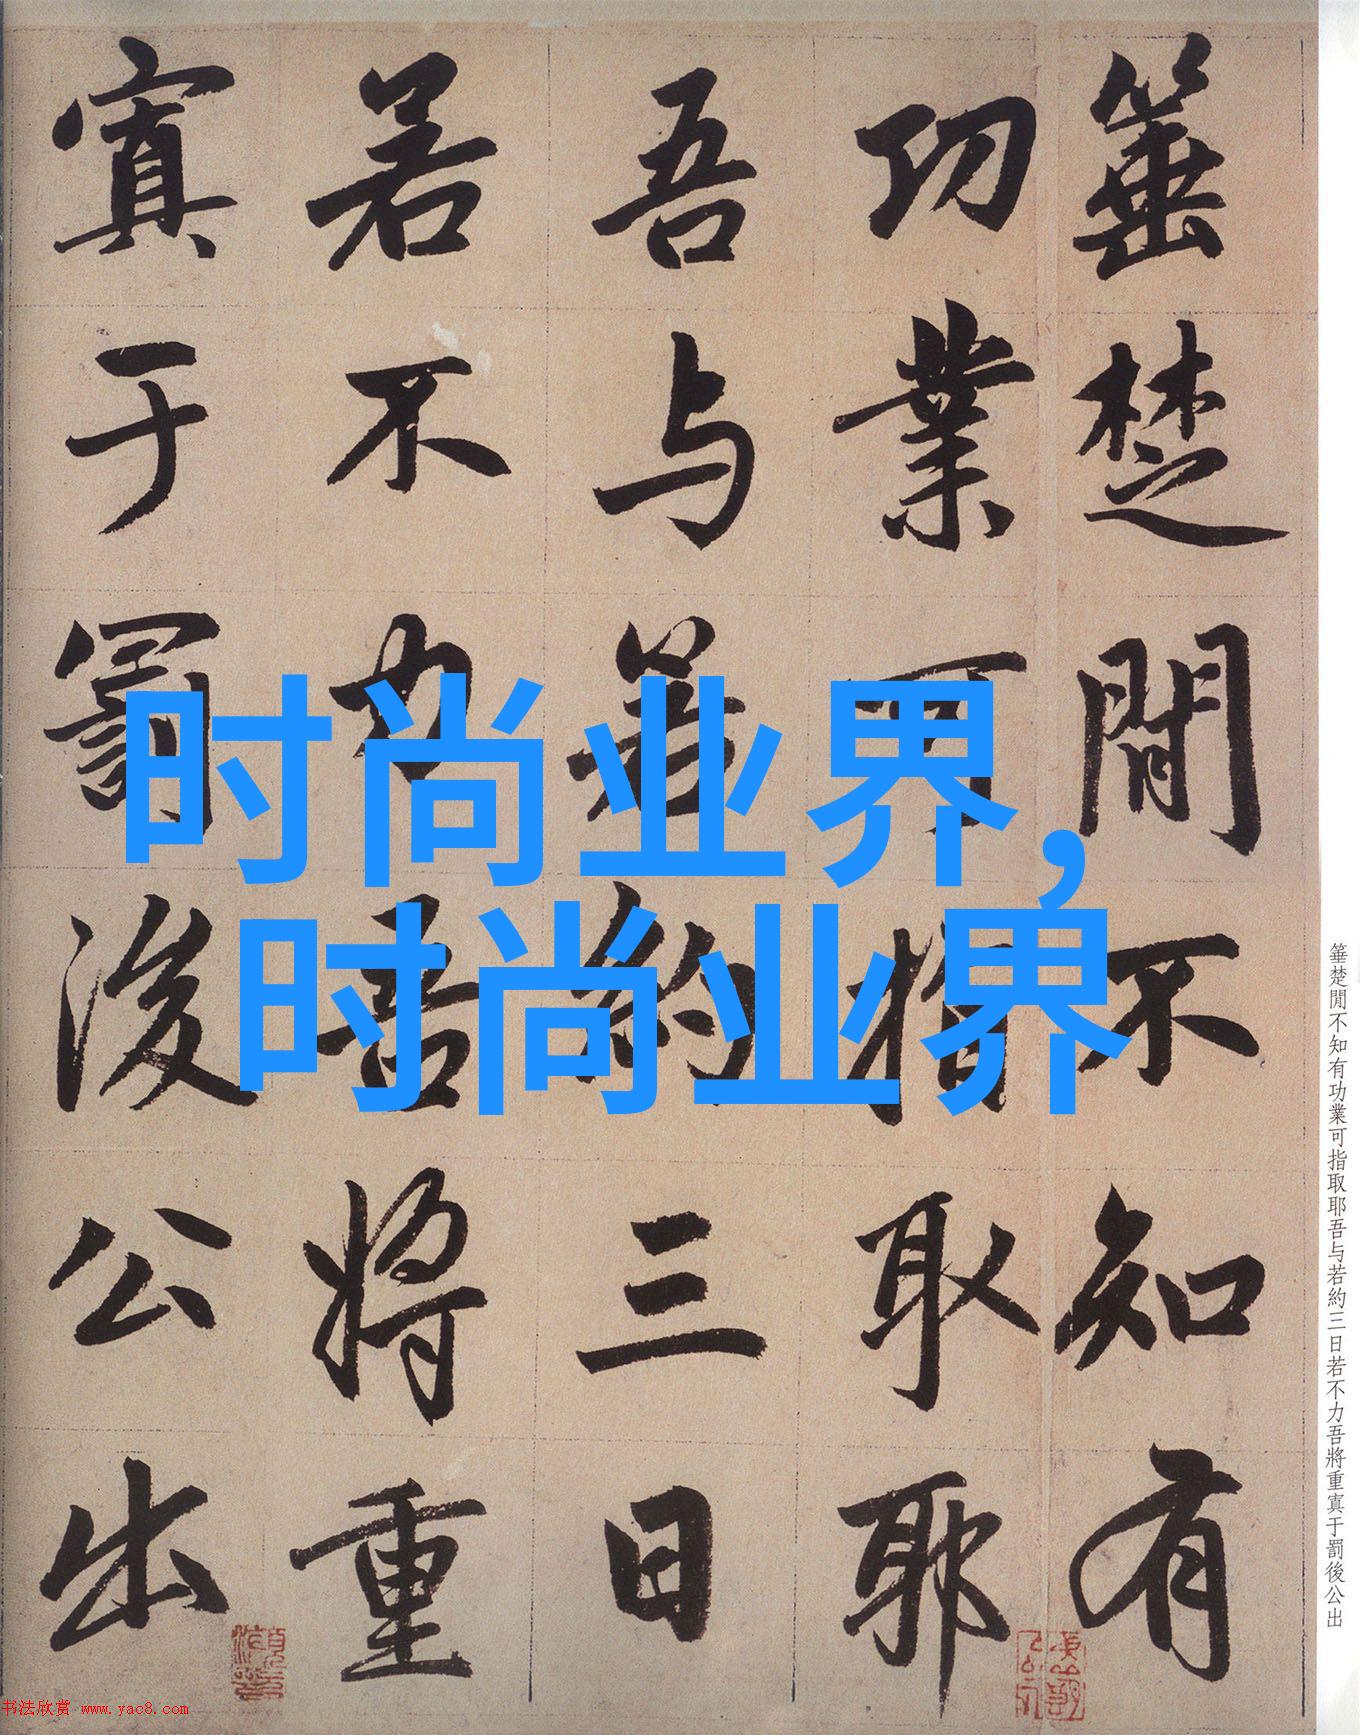 时尚业界,
时尚业界
箠楚閒不知有功業可指取耶吾与若約三日若不力吾將重寘于罰後公出
箠楚間不知有
功業可指取耶
吾与若約三日
若不力吾將重
寘于罰後公出
书法欣赏 www.yac8.com